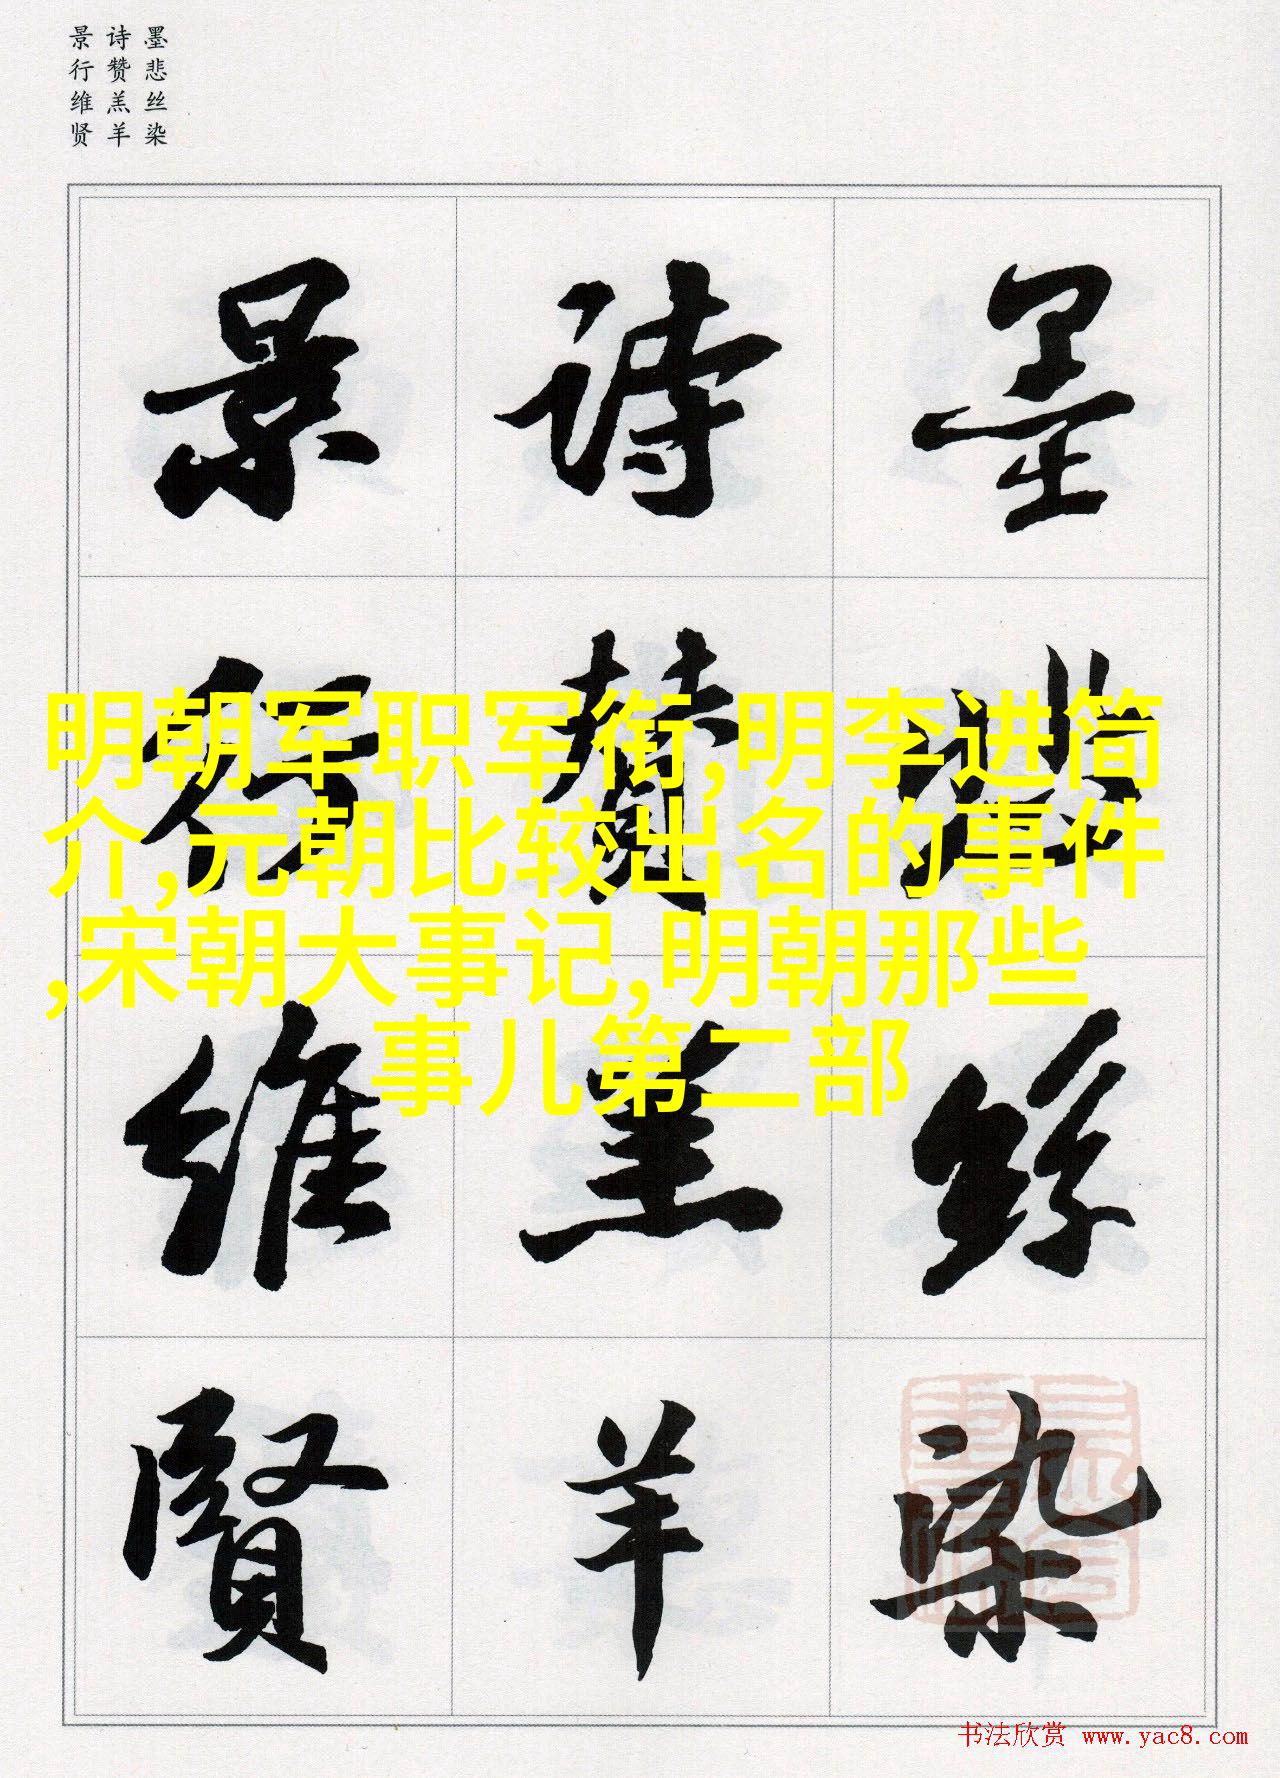 墨悲丝染
诗赞羔羊
景行维贤
墨悲絲染
詩贊羔羊
景行維賢
明朝军职军衔,明李进简
介,元朝比较出名的事件
,宋朝大事记,明朝那些
事儿第二部
书法欣赏 www.yac8.com